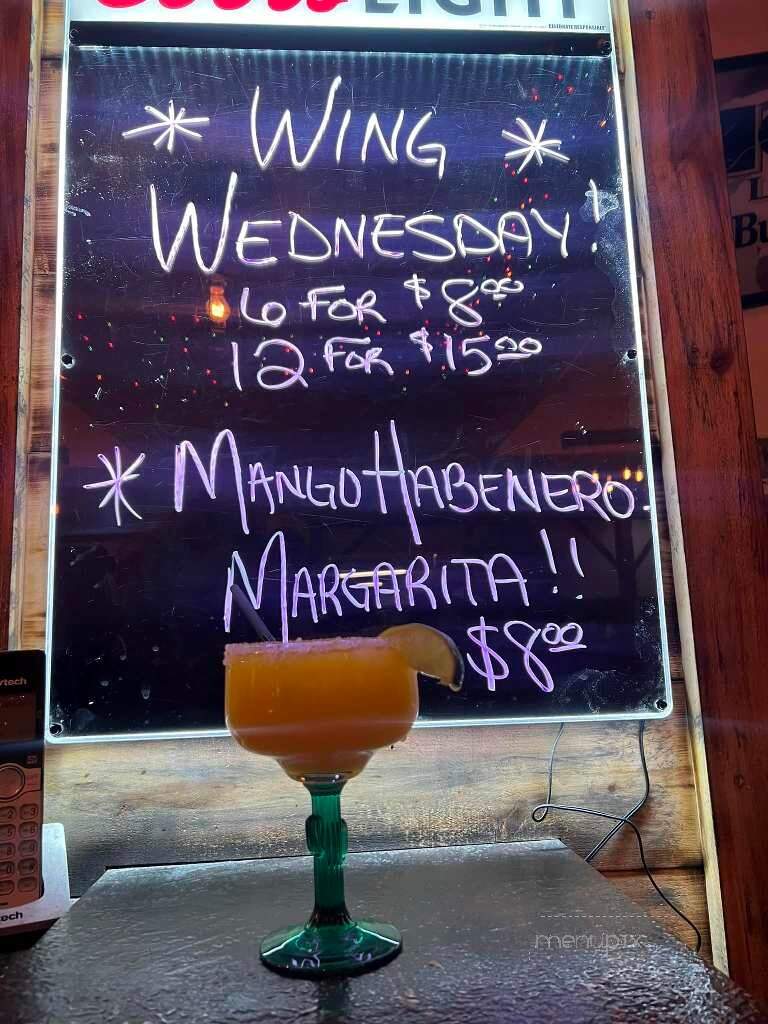 Coors LIGHT
* WING *
WEDNESDAY!
6 FOR $8.00
12 FOR $15.00
* MANGO HABENERO
MARGARITA!!
$8.00
Bu
vtech
menupix